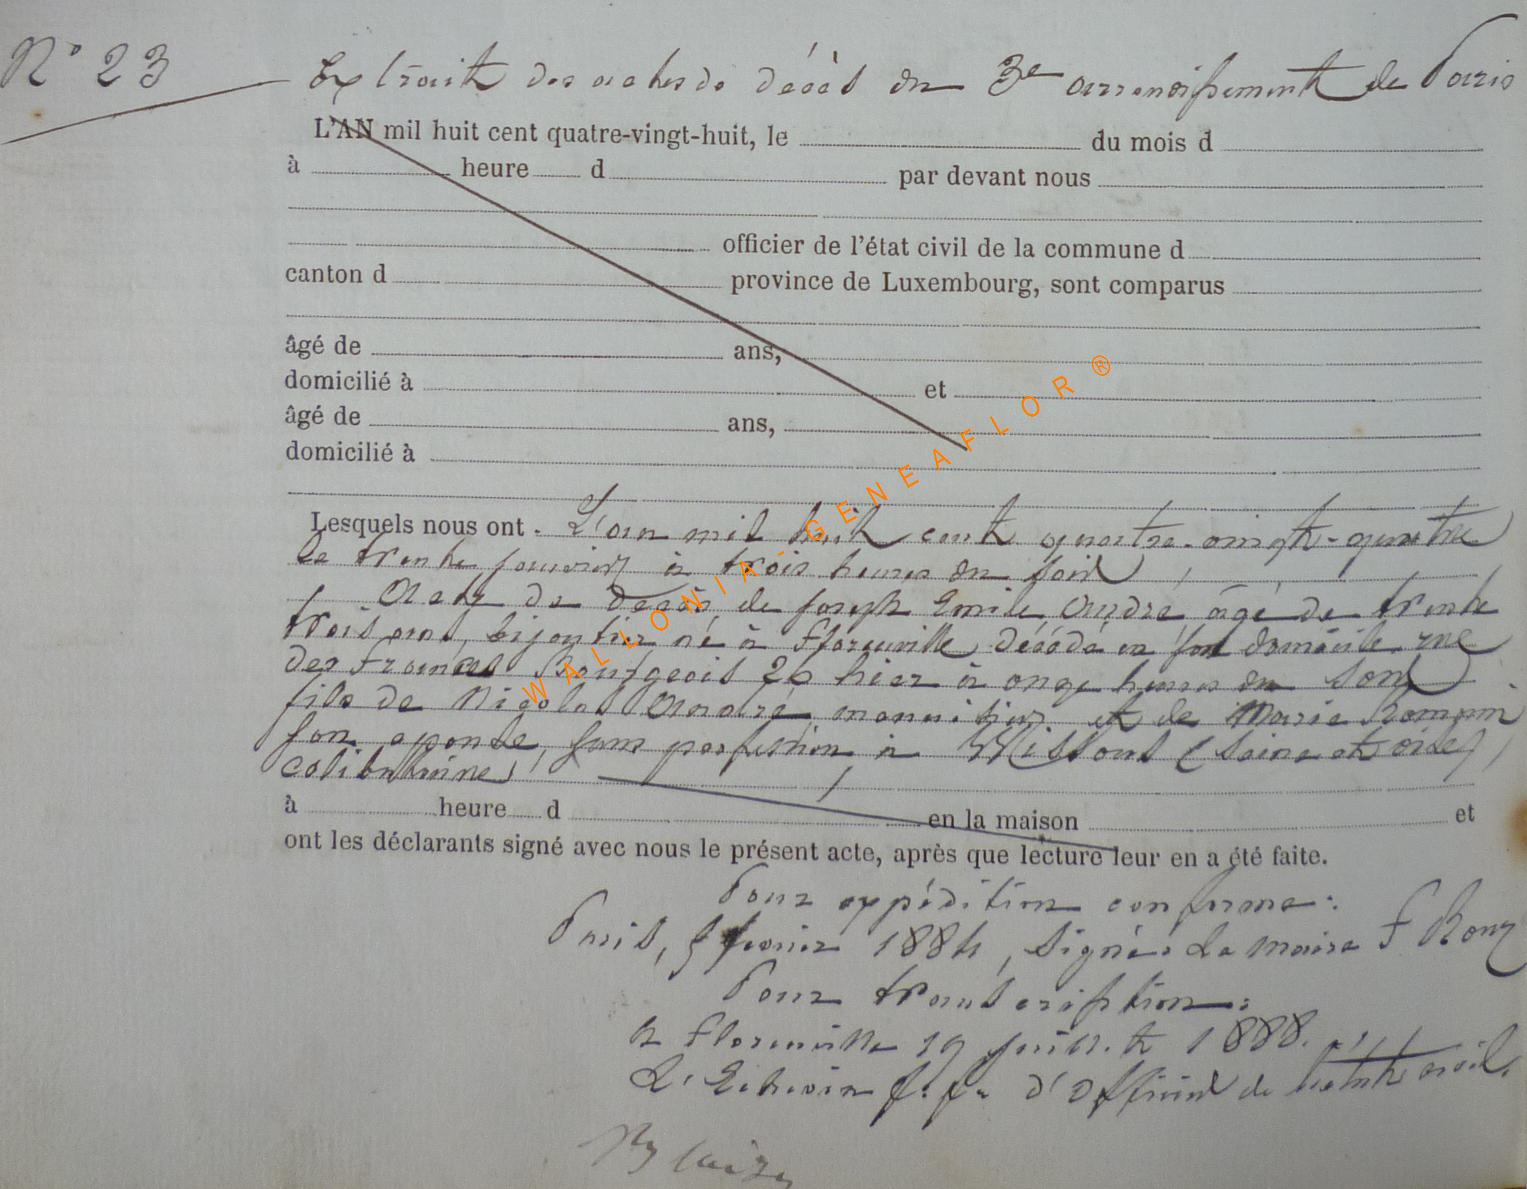 N° 23
Extrait des actes de décès du 3e arrondissement de Paris
L'AN mil huit cent quatre-vingt-huit, le du mois d
à heure d par devant nous
officier de l'état civil de la commune d
canton d province de Luxembourg, sont comparus
âgé de ans,
domicilié à et
âgé de ans,
domicilié à
Lesquels nous ont L'an mil huit cent quatre-vingt-quatre
le trente janvier à trois heures du soir,
Acte de décès de Joseph Emile André âgé de trente
trois ans, bijoutier né à Florenville décédé en son domicile rue
des Francs Bourgeois 26 hier à onze heures du soir
fils de Nicolas André, et de Marie
son épouse, sans profession à (Seine et Oise),
célibataire,
à heure d en la maison et
ont les déclarants signé avec nous le présent acte, après que lecture leur en a été faite.
Pour expédition conforme:
Paris, février 1884, signé: Le maire F
Pour transcription:
à Florenville 19 juillet 1888.
L'Echevin f. f. d'Officier de l'état civil.
WALLONIA-GENEAFLOR ®